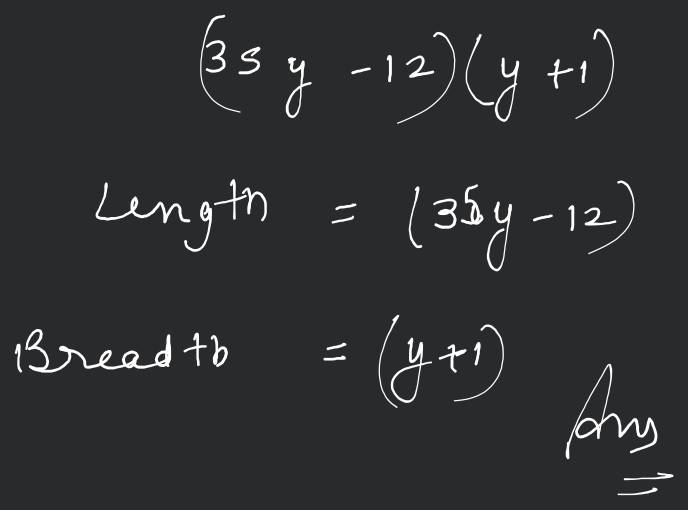 (35y -12)(y+1)
Length = (35y-12)
Breadth = (y+1)
Ans